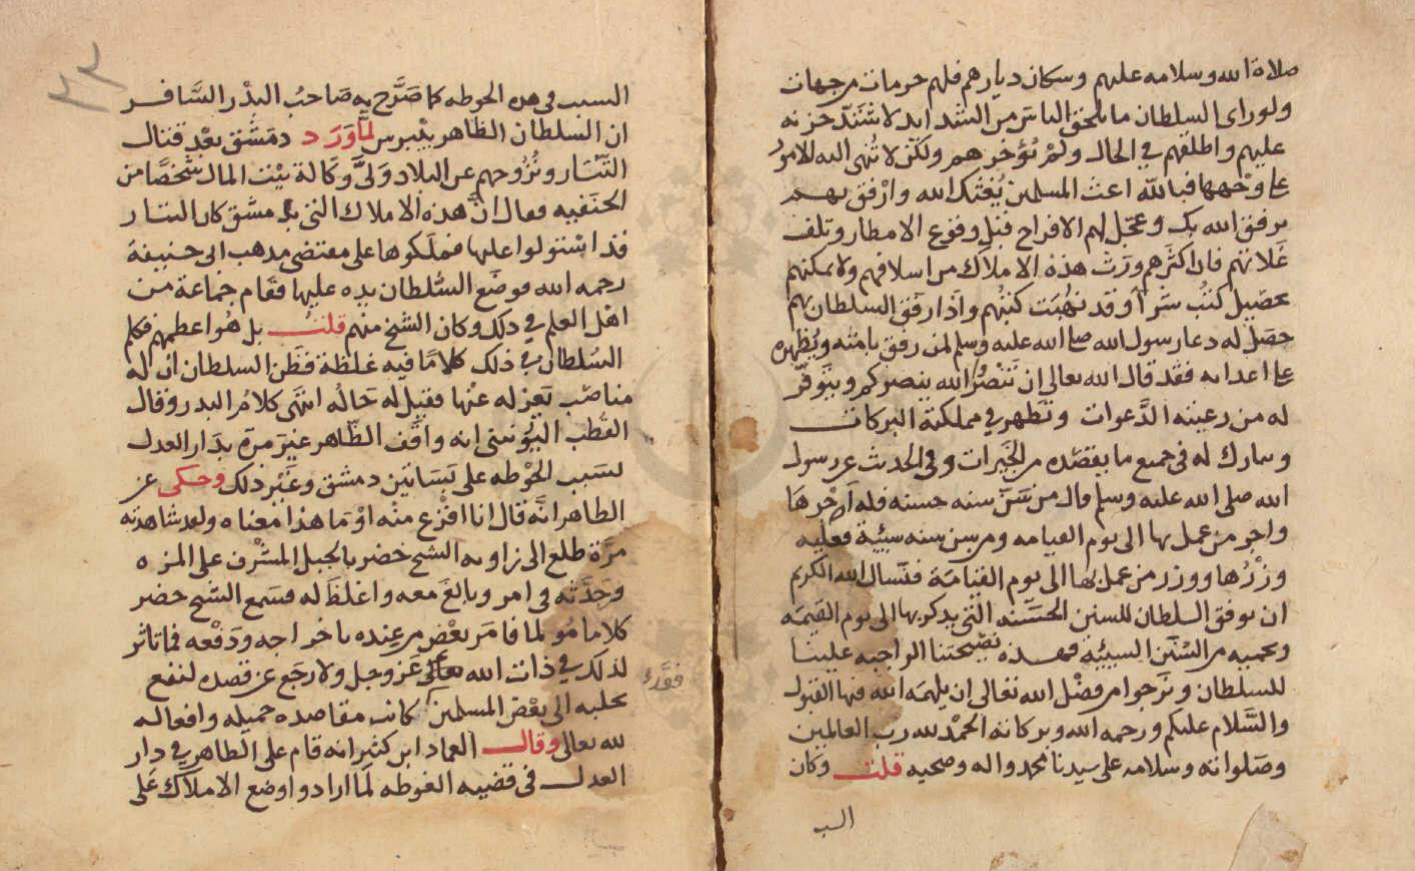 صلاة الله وسلامه عليهم وسكان ديارهم فلهم حرمات من جهات
ولو راى السلطان ما يلحق الناس من الشدايد لاشتد حزنه
عليهم واطلقهم في الحال ولم يؤخرهم ولكن لا تنهى اليه الامور
على وجهها فبالله اغث المسلمين يغثك الله وارفق بهم
يرفق الله بك وعجل لهم الافراج قبل وقوع الامطار وتلف
غلاتهم فان اكثرهم ورث هذه الاملاك من اسلافهم ولا يمكنهم
تحصيل كتب شرآ وقد نهبت كتبهم واذا رفق السلطان بهم
حصل له دعا رسول الله صلى الله عليه وسلم لمن رفق بامته ويظهره
على اعدايه فقد قال الله تعالى ان تنصروا الله ينصركم ويتوفر
له من رعيته الدعوات وتظهر في مملكته البركات
ويبارك له في جميع ما يقصده من الخيرات وفي الحديث عن رسول
الله صلى الله عليه وسلم قال من سن سنه حسنه فله اجرها
واجر من عمل بها الى يوم القيامه ومن سن سنه سيية فعليه
وزرها ووزر من عمل بها الى يوم القيامة فنسال الله الكريم
ان يوفق السلطان للسنن الحسنه التي يذكر بها الى يوم القيمه
ويحميه من السنن السيية فهذه نصيحتنا الواجبه علينا
للسلطان ونرجوا من فضل الله تعالى ان يلهمه الله فيها القبول
والسلام عليكم ورحمه الله وبركاته الحمد لله رب العالمين
وصلواته وسلامه على سيدنا محمد واله وصحبه قلت وكان
السب
٣٣
السبب في هذه الحوطه كما صرح به صاحب البدر السافر
ان السلطان الظاهر بيبرس لما ورد دمشق بعد قتال
التتار ونزوحهم عن البلاد ولى وكالة بيت المال شخصا من
الحنفيه فقال ان هذه الاملاك التي بدمشق كان التتار
قد استولوا عليها فملكوها على مقتضى مذهب ابي حنيفة
رحمه الله فوضع السلطان يده عليها فقام جماعة من
اهل العلم في ذلك وكان الشيخ منهم قلت بل هو اعظمهم فكلم
السلطان في ذلك كلاما فيه غلظة فظن السلطان ان له
مناصب يعزله عنها فقيل له حاله انتهى كلام البدر وقال
القطب اليونيني انه واقف الظاهر غير مرة بدار العدل
بسبب الحوطه على بساتين دمشق وغير ذلك وحكى عن
الظاهر انه قال انا افزع منه او ما هذا معناه ولقد شاهدته
مرة طلع الى زاويه الشيخ خضر بالجبل المشرف على المزه
وحدثه في امر وبالغ معه واغلظ له فسمع الشيخ خضر
كلاما مولما فامر بعض من عنده باخراجه ودفعه فما تاثر
لذلك في ذات الله تعالى عز وجل ولا رجع عن قصده لنفع
يجلبه الى بعض المسلمين كانت مقاصده جميله وافعاله
لله تعالى وقال العماد ابن كثير انه قام على الظاهر في دار
العدل في قضيه الغوطه لما ارادو اوضع الاملاك على